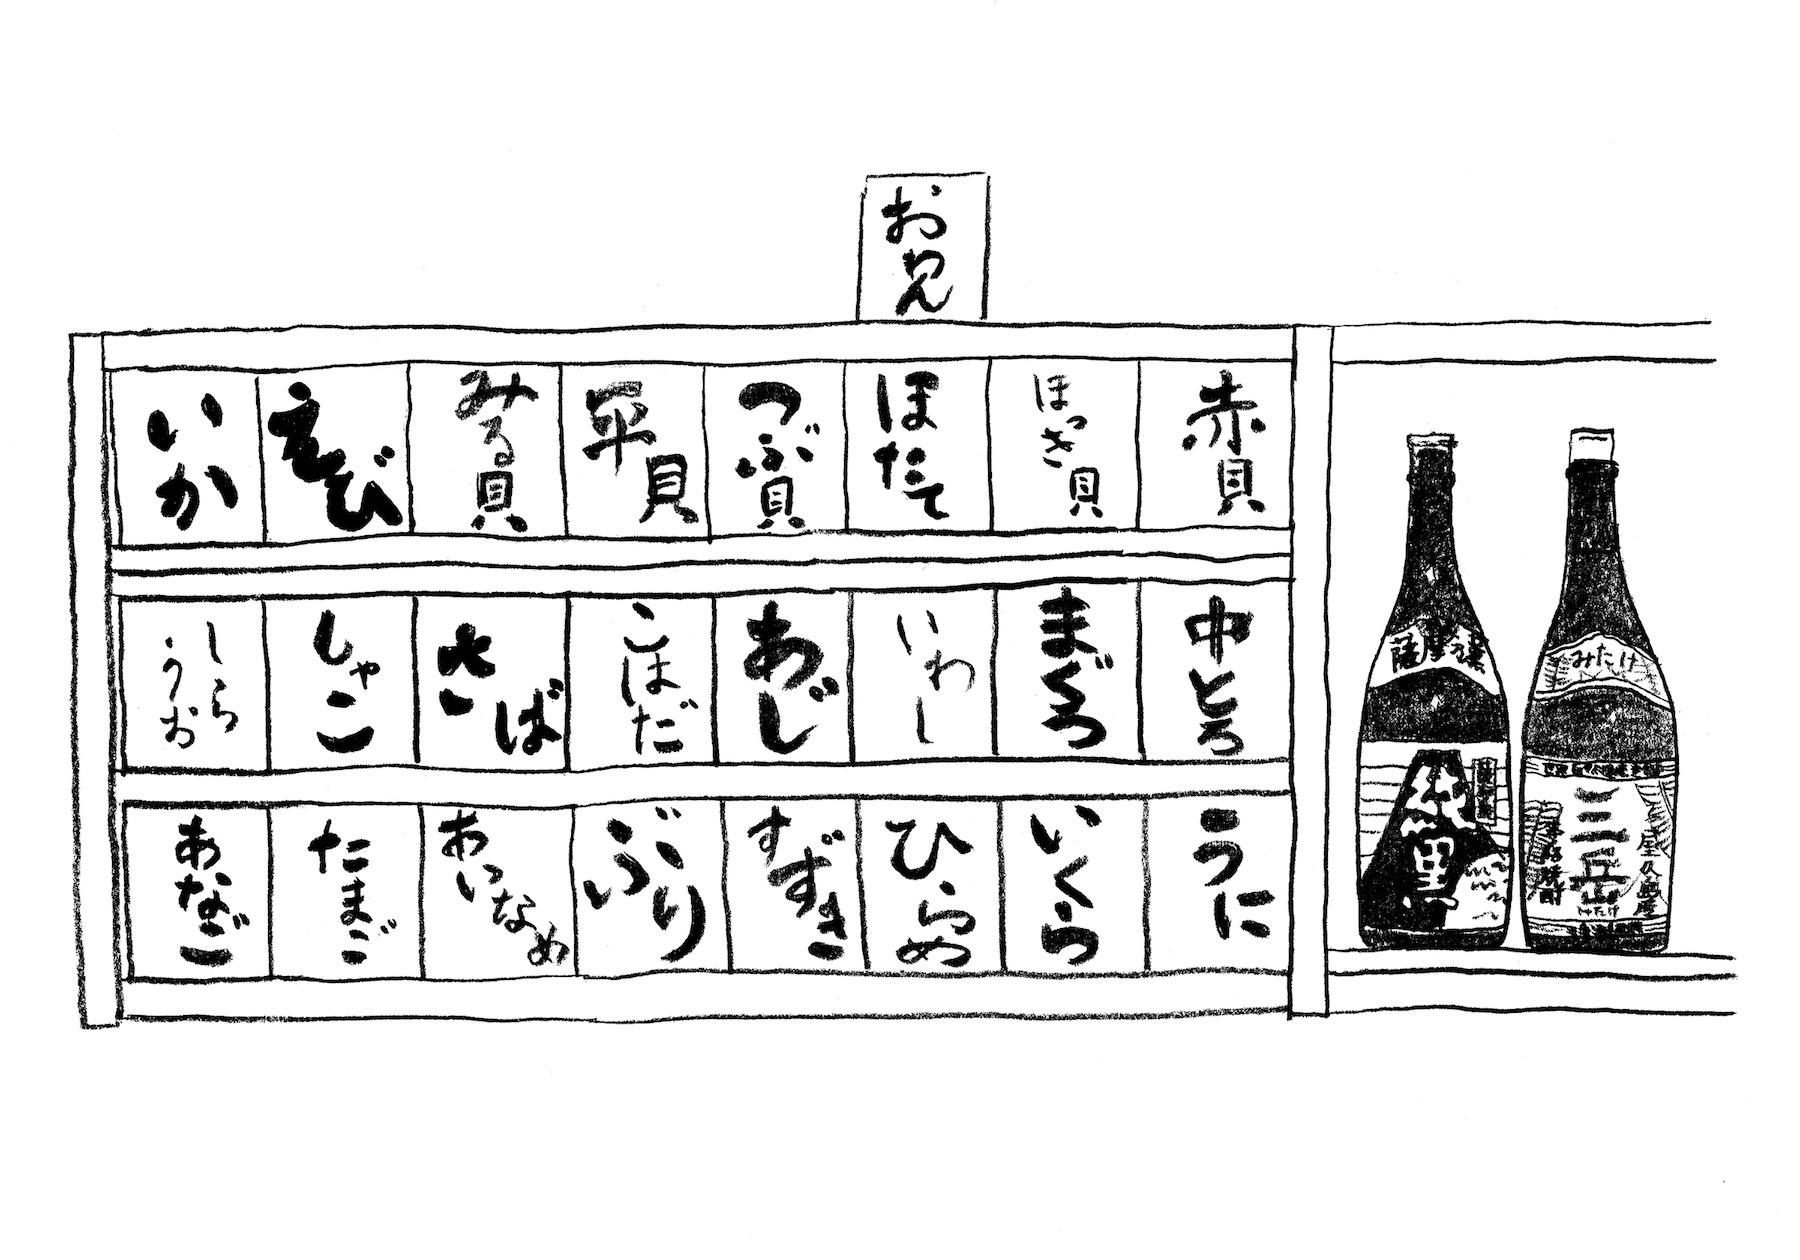 おわん
赤貝
ほっき貝
ほたて
つぶ貝
平貝
みる貝
えび
いか
中とろ
まぐろ
いわし
あじ
こはだ
さば
しゃこ
しらうお
うに
いくら
ひらめ
すずき
ぶり
あいなめ
たまご
あなご
みたけ
三岳
みたけ
本格焼酎